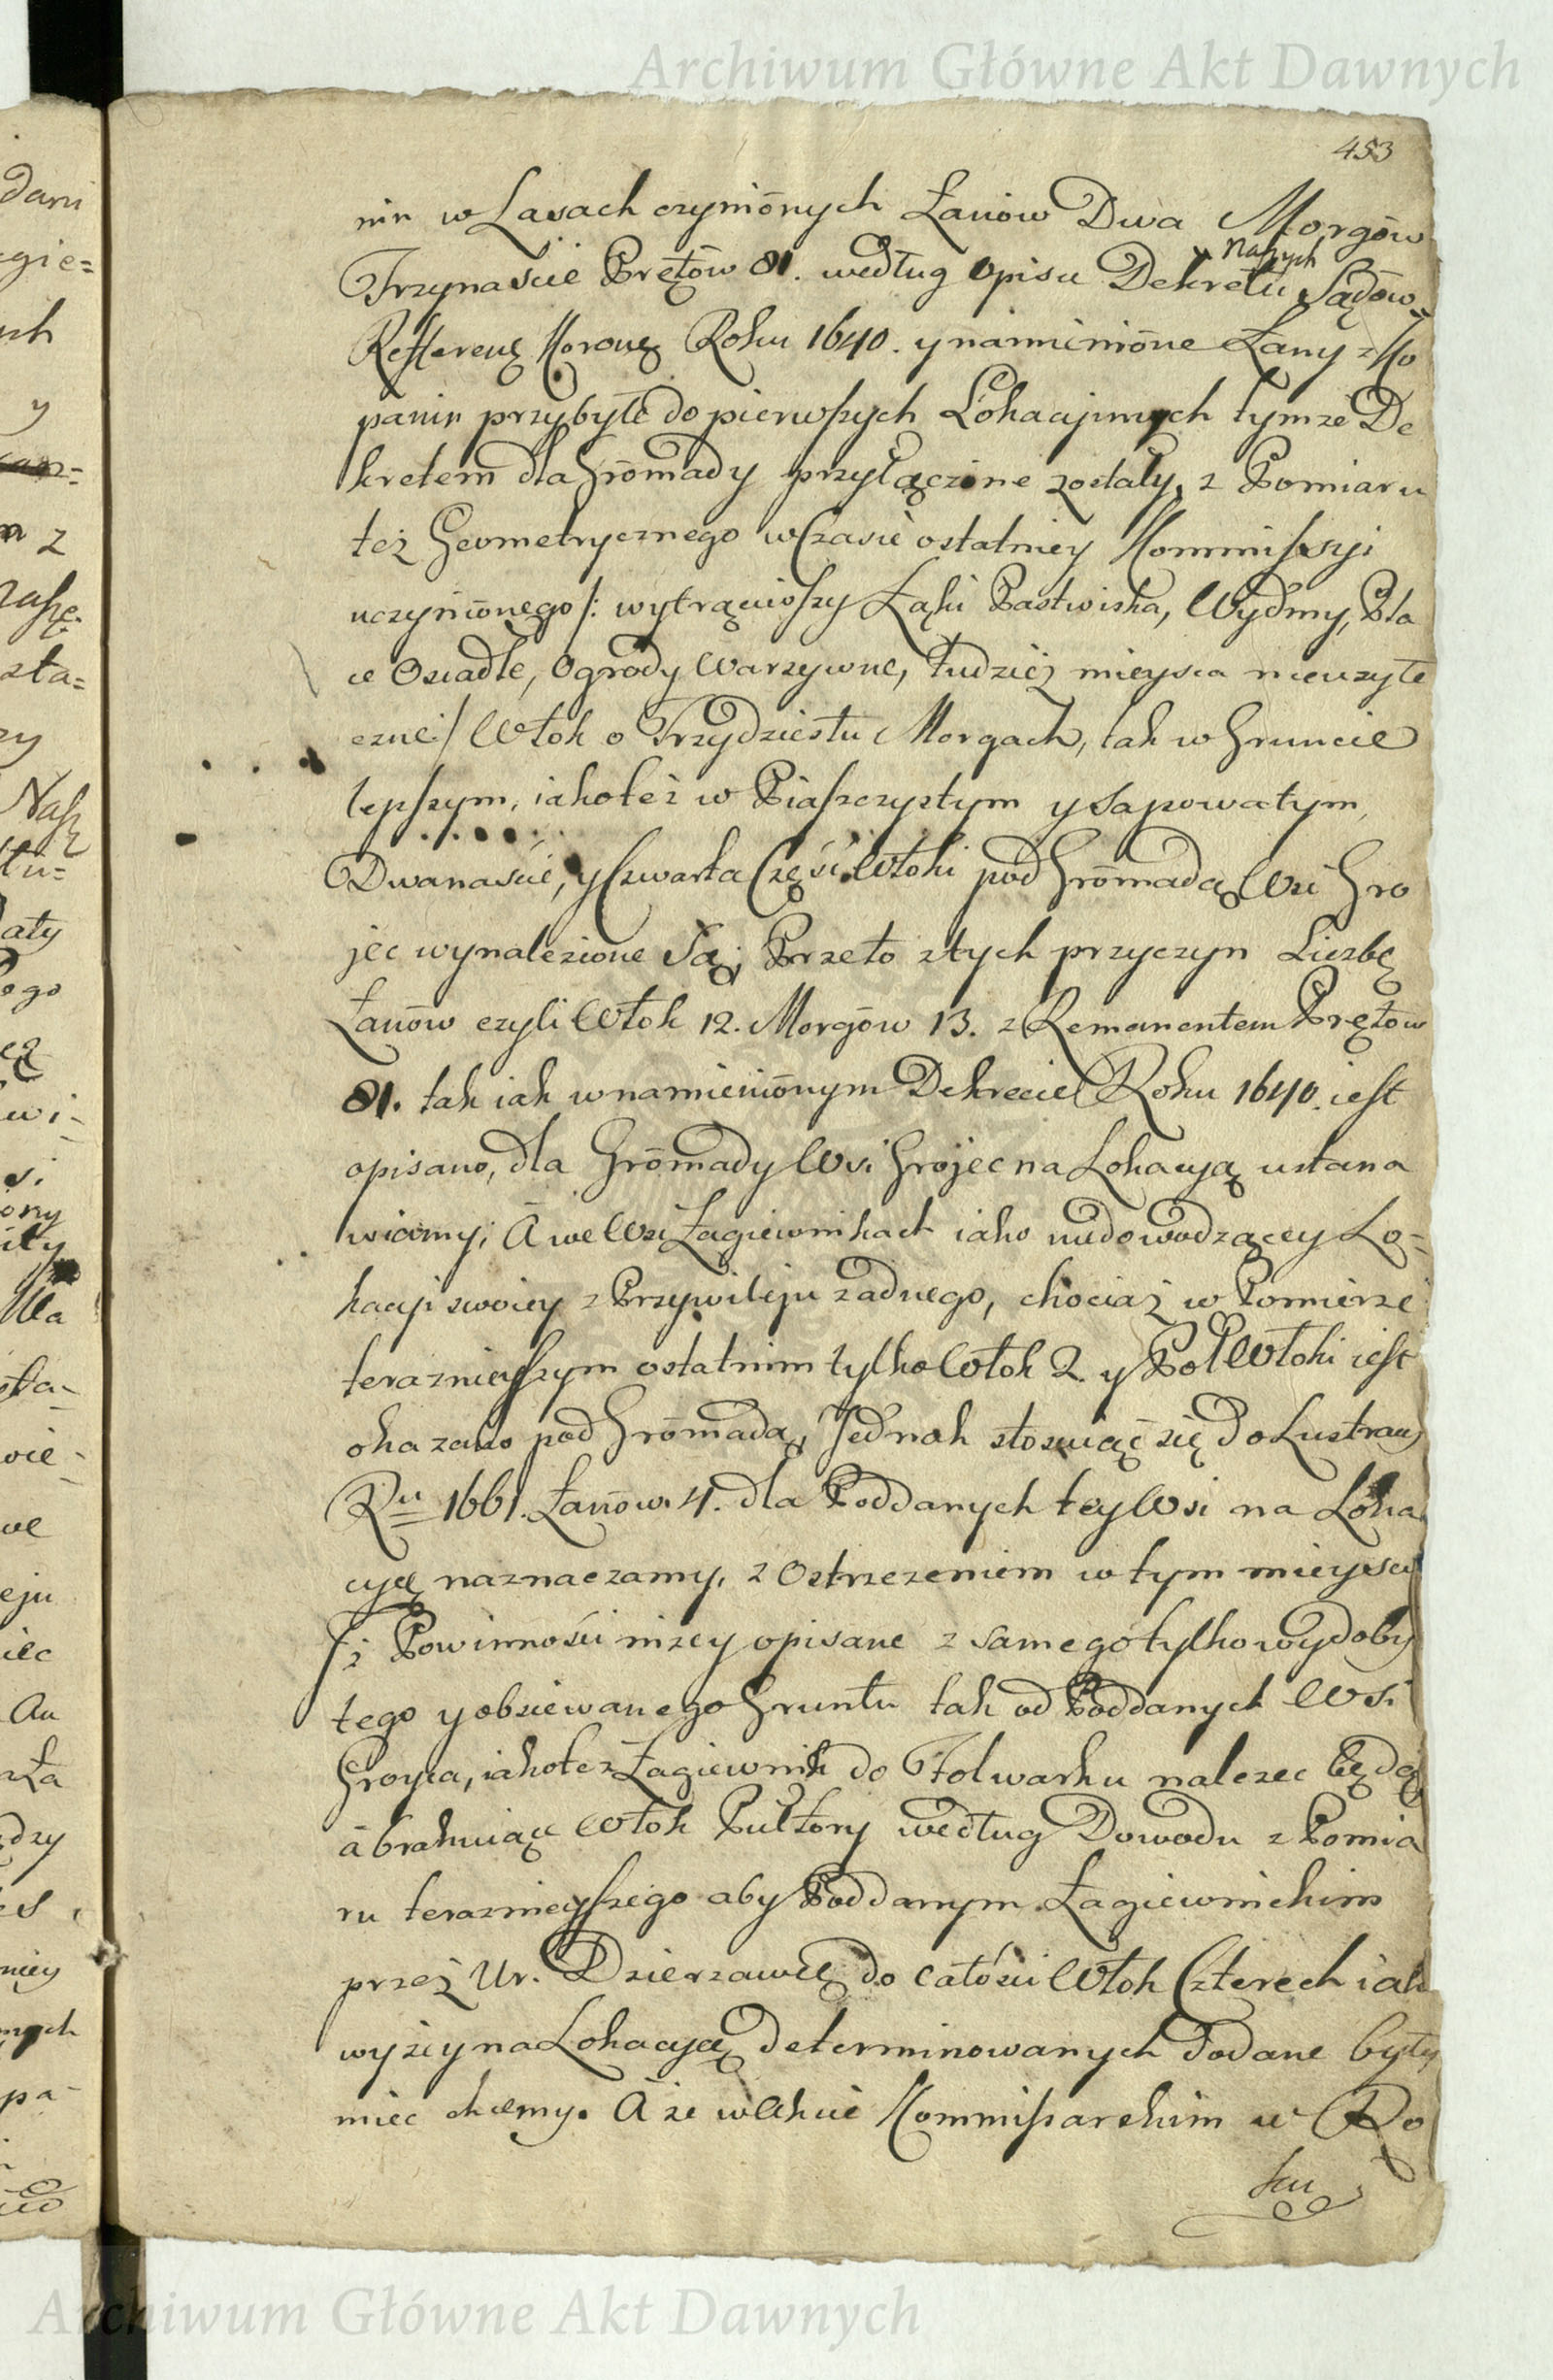 Archiwum Główne Akt Dawnych
453
nin w Lasach czyniōnych Łanów Dwa Morgów
Naszych
Trzynascie Prętów 81. według Opisu Dekretu Sądów
Refferenc. Koroney Roku 1640. y namieniōne Łany z Ko
panin przybyłe do pierwszych Lokacyinych tymze De
kretem dla Grōmady przyłączone zostały, z Pomiaru
też Geometrycznego w Czasie ostatniey Kommissyi
uczyniōnego /: wytrąciwszy Łąki Pastwiska, Wydmy, Pla
ce Osiadłe, Ogrody Warzywne, tudzież mieysca nieuzyte
czne :/ Włok o Trzydziestu Morgach, tak w Gruncie
lepszym, iakoteż w Piaszczystym y Sapowatym,
Dwanaście, y Czwarta Część Włoki pod Grōmadą Wsi Gro
jec wynalezione Są; Przeto z tych przyczyn Liczbę
Łanów czyli Włok 12. Morgów 13. z Remanentem Prętów
81. tak iak w namieniōnym Dekrecie Roku 1640. iest
opisano, dla Grōmady Wsi Grojec na Lokacyą ustana
wiamy; A we Wsi Łagiewnikach iako niedowodzącey Lo=
kacyi swoiey z Przywileju żadnego, chociaż w Pomierze
teraznieyszym ostatnim tylko Włok 2. y Poł Włoki iest
okazano pod Grōmadą, Jednak stosuiąc się do Lustracyi
Ru 1661. Łanów 4. dla Poddanych tey Wsi na Loka
cyą naznaczamy, z Ostrzezeniem w tym mieyscu
Iż Powinności niżey opisane z samego tylko wydoby
tego y obsiewanego Gruntu tak od Poddanych Wsi
Groyca, iakotez Łagiewnik do Folwarku nalezec będą
a brakuiące Włok Pułtory według Dowodu z Pomia
ru teraznieyszego aby Poddanym Łagiewnickim
przez Ur. Dzierzawcę do całości Włok Czterech iak
wyżey na Lokacyą determinowanych dodane były
miec chcemy. A ze w Akcie Kommissarskim w Ro
ku
Archiwum Główne Akt Dawnych